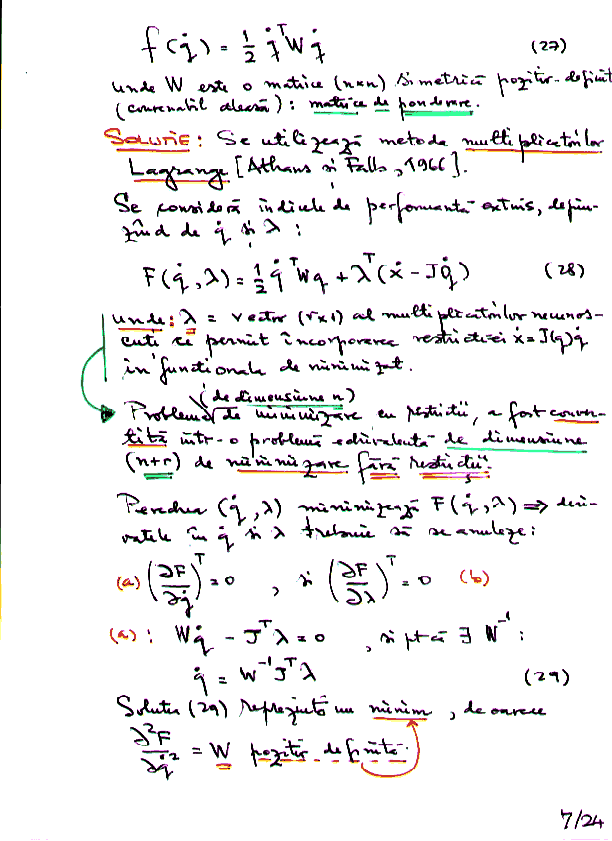 f(q̇) = ½ q̇ᵀ W q̇ (27)
unde W este o matrice (n×n) simetrică pozitiv-definit
(convenabil aleasă) : matrice de ponderare.
SOLUȚIE: Se utilizează metoda multiplicatorilor
Lagrange [Athans și Falb, 1966].
Se consideră indicele de performanță extins, depin-
zînd de q̇ și λ :
F(q̇, λ) = ½ q̇ᵀ W q + λᵀ(ẋ − Jq̇) (28)
unde: λ = vector (r×1) al multiplicatorilor necunos-
cuți ce permit încorporarea restricției ẋ = J(q)q̇
în funcționala de minimizat.
(de dimensiune n)
Problema de minimizare cu restricții, a fost conver-
tită într-o problemă echivalentă de dimensiune
(n+r) de minimizare fără restricții.
Perechea (q̇, λ) minimizează F(q̇, λ) ⇒ deri-
vatele în q̇ și λ trebuie să se anuleze:
(a) (∂F/∂q̇)ᵀ = 0 , și (∂F/∂λ)ᵀ = 0 (b)
(a) : Wq̇ − Jᵀλ = 0 , și pt că ∃ W⁻¹ :
q̇ = W⁻¹Jᵀλ (29)
Soluția (29) reprezintă un minim , deoarece
∂²F/∂q̇² = W pozitiv definită.
7/24